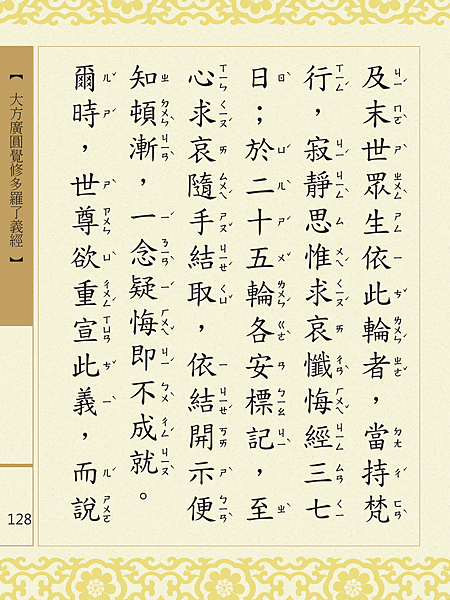 及末世眾生依此輪者，當持梵
行，寂靜思惟求哀懺悔經三七
日；於二十五輪各安標記，至
心求哀隨手結取，依結開示便
知頓漸，一念疑悔即不成就。
爾時，世尊欲重宣此義，而說
【大方廣圓覺修多羅了義經】
128